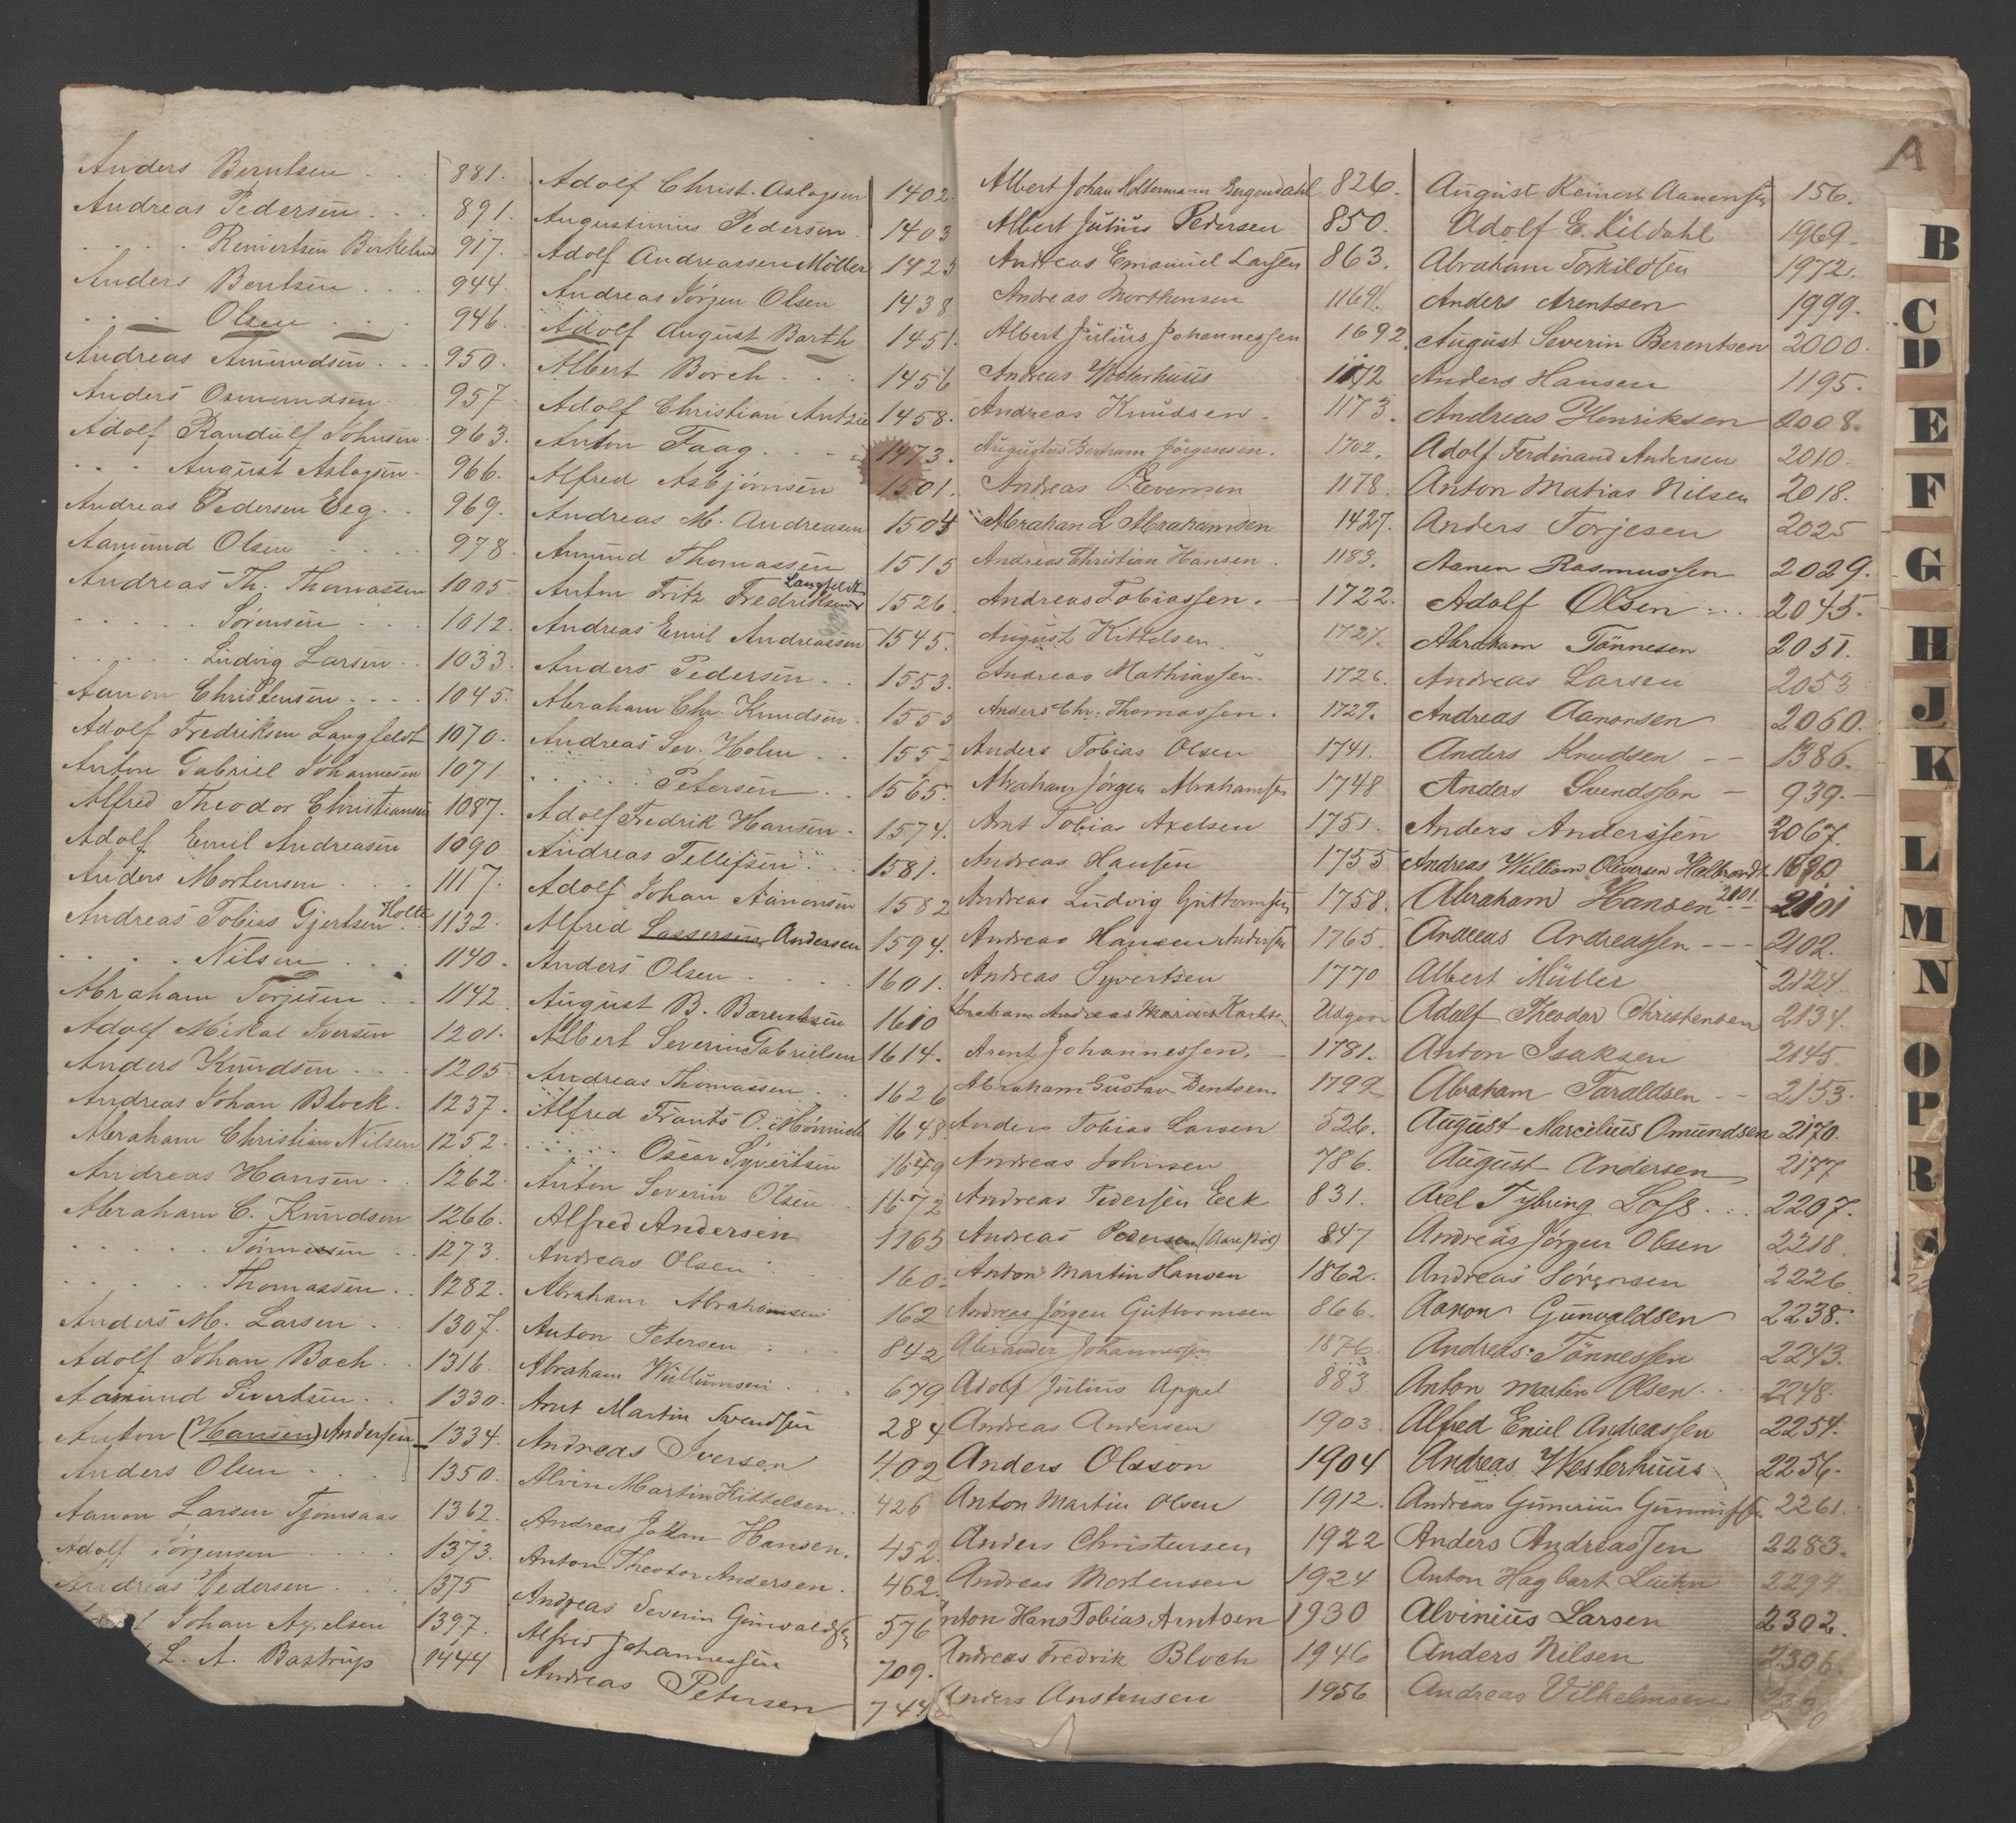 Anders Berntsen . . . 881.
Andreas Pedersen . . . 891.
. . . . Reniertsen Birkeland 917.
Anders Bentsen . . . 944.
. . . . Olsen . . . 946.
Andreas Amundsen . . . 950.
Anders Osmundsen . 957.
Adolf Randulf Johnsen . 963.
. . . August Aslagsen . 966.
Andreas Pedersen Eeg . . 969.
Aamund Olsen . . . . 978.
Andreas Th. Thomassen 1005.
. . . . . Sørensen . . . 1012.
. . . . . Ludvig Larsen . . 1033.
Aanon Christensen . . . . 1045.
Adolf Fredriksen Langfeldt 1070.
Anton Gabriel Johannesen 1071
Alfred Theodor Christiansen 1087.
Adolf Emil Andreasen 1090
Anders Mortensen . . . 1117.
Andreas Tobias Gjertsen Holte 1132.
. . . . . Nilsen . . . 1140.
Abraham Torjesen . . 1142.
Adolf Mikal Iversen 1201.
Anders Knudsen . . . 1205
Andreas Johan Block . 1237.
Abraham Christian Nilsen 1252.
Andreas Hansen . . 1262.
Abraham C. Knudsen 1266.
. . . . . Tønnessen . . 1273.
. . . . . Thomassen . . 1282.
Anders M. Larsen . . 1307.
Adolf Johan Bach . . 1316.
Aamund Sivertsen . . 1330.
Anton (Hansen) Andersen 1334.
Anders Olsen . . . . 1350.
Aanon Larsen Tjomsaas 1362.
Adolf Jørgensen . . . . 1373.
Andreas Pedersen . . . 1375
Johan Axelsen 1397.
L. A. Bastrup 1444
Adolf Christ. Aslagsen 1402.
Augustinius Pedersen . 1403
Adolf Andreassen Møller 1423
Andreas Jørgen Olsen 1438
Adolf August Barth 1451.
Albert Borch . . . 1456
Adolf Christian Antzie 1458.
Anton Faag . . . . 1473.
Alfred Asbjørnsen 1501.
Andreas M. Andreasen 1504
Amund Thomassen 1515
Anton Fritz Fredriksen Langfeldt 1526.
Andreas Emil Andreassen 1545.
Anders Pedersen . . 1553.
Abraham Chr. Knudsen . 1553
Andreas Sev. Holm . . 1557
. . . . . Petersen . . 1565.
Adolf Fredrik Hansen . 1574.
Andreas Tellefsen . . . 1581.
Adolf Johan Aanonsen 1582
Alfred Lassersen Andersen 1594.
Anders Olsen . . . 1601.
August B. Barentsen 1610
Albert Severin Gabrielsen 1614.
Andreas Thomassen . . 1626
Alfred Frants O. Mønnich 1648
. . . . . Oscar Syvertsen 1649
Anton Severin Olsen . . 1672
Alfred Andersen 1165
Andreas Olsen . . . 160.
Abraham Abrahamsen 162
Anton Petersen . . . 842
Abraham Willumsen . . . 679
Arnt Martin Svendsen 284
Andreas Iversen 402
Alvin Martin Kittelsen . . 426
Andreas Johan Hansen . 452.
Anton Theodor Andersen . 462.
Andreas Severin Gunvaldsen 576
Alfred Johannessen 709.
Andreas Petersen 744
A
Albert Johan Mollermann Bugendahl 826.
Albert Julius Pedersen 850.
Andreas Emanuel Larsen 863.
Andreas Morthensen 1169.
Albert Julius Johannessen 1692.
Andreas Westerhuus 1172
Andreas Knudsen . 1173.
Augustus Bertram Jørgensen . 1702.
Andreas Evensen 1178.
Abraham L Abrahamsen 1427.
Andreas Christian Hansen . 1183.
Andreas Tobiassen . 1722.
August Kittelsen . 1727.
Andreas Mathiassen . 1726.
Anders Chr. Thomassen . 1729.
Anders Tobias Olsen 1741.
Abraham Jørgen Abrahamsen 1748
Arnt Tobias Axelsen 1751.
Andreas Hansen 1755
Andreas Ludvig Guttormsen 1758.
Andreas Hansen Andersen 1765.
Andreas Syvertsen 1770
Abraham Andreas Marius Karlsen Udgaar
Arent Johannessen . 1781.
Abraham Gustav Bentsen 1799
Anders Tobias Larsen 526.
Andreas Johnsen 786.
Andreas Pedersen Eek 831.
Andreas Pedersen 847
Anton Martin Hansen 1862.
Andreas Jørgen Guttormsen 866.
Alexander Johannessen 1876.
Adolf Julius Appel 883
Andreas Andersen 1903
Anders Olsson 1904
Anton Martin Olsen 1912.
Anders Christensen 1922
Andreas Mortensen 1924
Anton Hans Tobias Arntsen 1930
Andreas Fredrik Bloch 1946
Anders Anstensen 1956
August Reinert Aanensen 156.
Adolf E. Kildahl 1969.
Abraham Torkildsen 1972.
Anders Arentsen 1999.
August Severin Berentsen 2000.
Anders Hansen 1195.
Andreas Henriksen 2008.
Adolf Ferdinand Andersen 2010.
Anton Matias Nilsen 2018.
Anders Torjesen 2025
Aanen Rasmussen 2029.
Adolf Olsen . . . 2045.
Abraham Tønnesen 2051.
Andreas Larsen 2053
Andreas Aanonsen 2060.
Anders Knudsen -- 1386.
Anders Svendsson - 939.
Anders Anderssen 2067.
Andreas William Oliversen Holbrardt 1690
Abraham Hansen 2101 2101
Andreas Andreassen --- 2102.
Albert Müller 2124.
Adolf Theodor Christensen 2134.
Anton Isaksen 2145.
Abraham Taraldsen -- 2153.
August Marcelius Omundsen 2170.
August Andersen 2177
Axel Tybring Loss . . . 2207.
Andreas Jørgen Olsen 2218.
Andreas Sørensen 2226
Aanon Gunvaldsen 2238.
Andreas Tønnessen 2243.
Anton Martin Olsen . . 2248.
Alfred Emil Andreassen 2254.
Andreas Westerhuus 2256.
Andreas Gunerius Gunnufsen 2261.
Anders Andreassen 2283.
Anton Hagbart Luihn 2294
Alvinius Larsen 2302.
Anders Nilsen 2306.
Andreas Vilhelmsen
B
C
D
E
F
G
H
J
K
L
M
N
O
P
R
S